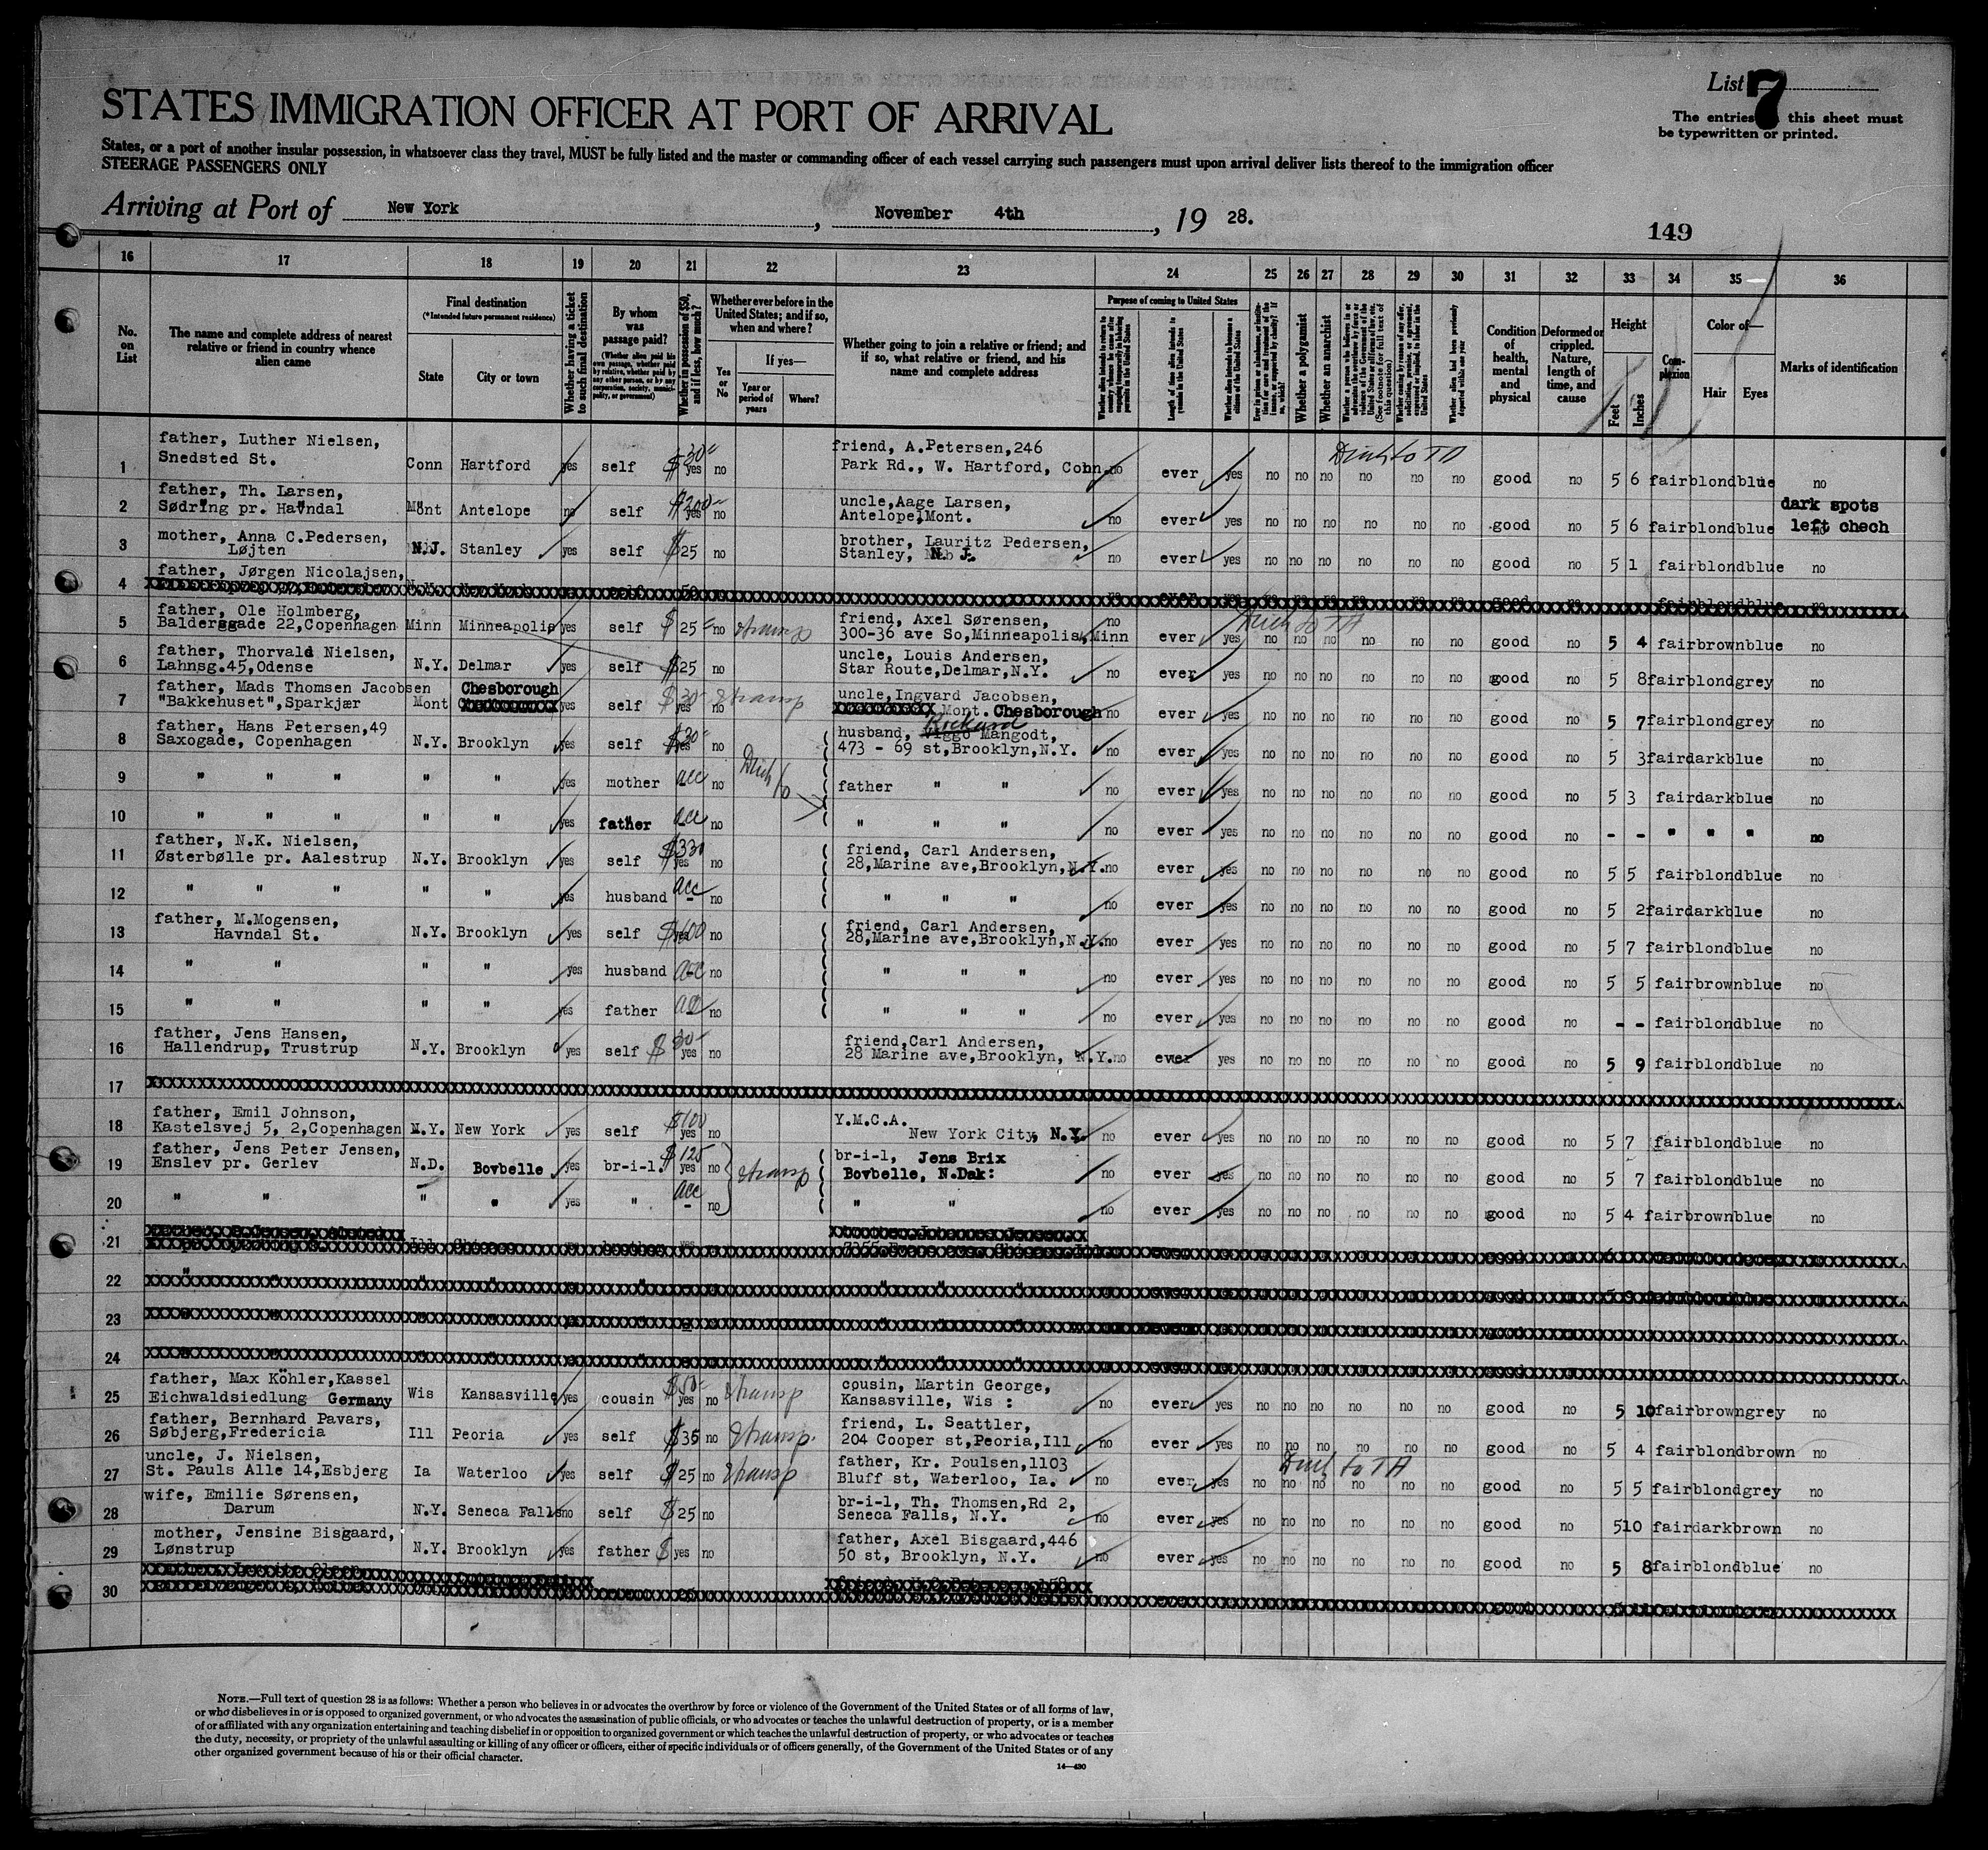 List 7
The entries this sheet must
be typewritten or printed.
STATES IMMIGRATION OFFICER AT PORT OF ARRIVAL
States, or a port of another insular possession, in whatsoever class they travel, MUST be fully listed and the master or commanding officer of each vessel carrying such passengers must upon arrival deliver lists thereof to the immigration officer
STEERAGE PASSENGERS ONLY
Arriving at Port of New York, November 4th, 19 28.
149
16 17 18 19 20 21 22 23 24 25 26 27 28 29 30 31 32 33 34 35 36
No. on List
The name and complete address of nearest relative or friend in country whence alien came
Final destination
(*Intended future permanent residence)
State
City or town
Whether having a ticket to such final destination
By whom was passage paid?
(Whether alien paid his own passage, whether paid by relative, whether paid by any other person, or by any corporation, society, municipality, or government)
Whether in possession of $50, and if less, how much?
Whether ever before in the United States; and if so, when and where?
Yes or No
If yes—
Year or period of years
Where?
Whether going to join a relative or friend; and if so, what relative or friend, and his name and complete address
Purpose of coming to United States
Length of time alien intends to remain in the United States
Whether alien intends to become a citizen of the United States
Whether a polygamist
Whether an anarchist
Condition of health, mental and physical
Deformed or crippled. Nature, length of time, and cause
Height
Feet
Inches
Complexion
Color of—
Hair
Eyes
Marks of identification
1 father, Luther Nielsen, Snedsted St. Conn Hartford yes self $30 yes no friend, A.Petersen,246 Park Rd., W. Hartford, Conn. no ever yes no no no no no no good no 5 6 fair blond blue no
2 father, Th. Larsen, Sødring pr. Havndal Mont Antelope no self $200 yes no uncle,Aage Larsen, Antelope,Mont. no ever yes no no no no no no good no 5 6 fair blond blue dark spots left chech
3 mother, Anna C.Pedersen, Løjten N.J. Stanley yes self $25 no brother, Lauritz Pedersen, Stanley, N. J. no ever yes no no no no no no good no 5 1 fair blond blue no
4 father, Jørgen Nicolajsen,
5 father, Ole Holmberg, Baldersgade 22,Copenhagen Minn Minneapolis yes self $25 no transp friend, Axel Sørensen, 300-36 ave So,Minneapolis,Minn no ever yes no no no no no no good no 5 4 fair brown blue no
6 father, Thorvald Nielsen, Lahnsg.45,Odense N.Y. Delmar yes self $25 no uncle, Louis Andersen, Star Route,Delmar,N.Y. no ever yes no no no no no no good no 5 8 fair blond grey no
7 father, Mads Thomsen Jacobsen "Bakkehuset",Sparkjær Mont Chesborough yes self $30 yes no transp uncle,Ingvard Jacobsen, Mont. Chesborough no ever yes no no no no no no good no 5 7 fair blond grey no
8 father, Hans Petersen,49 Saxogade, Copenhagen N.Y. Brooklyn yes self $30 yes no husband, Viggo Mangodt, 473 - 69 st,Brooklyn,N.Y. no ever yes no no no no no no good no 5 3 fair dark blue no
9 " " " " " yes mother acc no father " " no ever yes no no no no no no good no 5 3 fair dark blue no
10 " " " " " yes father acc no " " " no ever yes no no no no no no good no - - " " " no
11 father, N.K. Nielsen, Østerbølle pr. Aalestrup N.Y. Brooklyn yes self $330 yes no friend, Carl Andersen, 28,Marine ave,Brooklyn,N.Y. no ever yes no no no no no no good no 5 5 fair blond blue no
12 " " " " " yes husband acc - no " " " no ever yes no no no no no no good no 5 2 fair dark blue no
13 father, M.Mogensen, Havndal St. N.Y. Brooklyn yes self $600 yes no friend, Carl Andersen, 28,Marine ave,Brooklyn,N.Y. no ever yes no no no no no no good no 5 7 fair blond blue no
14 " " " " yes husband acc no " " " no ever yes no no no no no no good no 5 5 fair brown blue no
15 " " " " yes father acc no " " " no ever yes no no no no no no good no - - fair blond blue no
16 father, Jens Hansen, Hallendrup, Trustrup N.Y. Brooklyn yes self $30 yes no friend,Carl Andersen, 28 Marine ave,Brooklyn, N.Y. no ever yes no no no no no no good no 5 9 fair blond blue no
17
18 father, Emil Johnson, Kastelsvej 5, 2,Copenhagen N.Y. New York yes self $100 yes no Y.M.C.A. New York City, N.Y. no ever yes no no no no no no good no 5 7 fair blond blue no
19 father, Jens Peter Jensen, Enslev pr. Gerlev N.D. Bovbelle yes br-i-l. $125 yes no transp br-i-l, Jens Brix Bovbelle, N.Dak: no ever yes no no no no no no good no 5 7 fair blond blue no
20 " " " " yes " acc - no " " no ever yes no no no no no no good no 5 4 fair brown blue no
21
22
23
24
25 father, Max Köhler,Kassel Eichwaldsiedlung Germany Wis Kansasville yes cousin $50 yes no transp cousin, Martin George, Kansasville, Wis : no ever yes no no no no no no good no 5 10 fair brown grey no
26 father, Bernhard Pavars, Søbjerg,Fredericia Ill Peoria yes self $35 no transp. friend, L. Seattler, 204 Cooper st,Peoria,Ill no ever yes no no no no no no good no 5 4 fair blond brown no
27 uncle, J. Nielsen, St. Pauls Alle 14,Esbjerg Ia Waterloo yes self $25 no transp father, Kr. Poulsen,1103 Bluff st, Waterloo, Ia. no ever yes no no no no no no good no 5 5 fair blond grey no
28 wife, Emilie Sørensen, Darum N.Y. Seneca Falls no self $25 no br-i-l, Th. Thomsen,Rd 2, Seneca Falls, N.Y. no ever yes no no no no no no good no 5 10 fair dark brown no
29 mother, Jensine Bisgaard, Lønstrup N.Y. Brooklyn yes father $ yes no father, Axel Bisgaard,446 50 st, Brooklyn, N.Y. no ever yes no no no no no no good no 5 8 fair blond blue no
30
NOTE.—Full text of question 28 is as follows: Whether a person who believes in or advocates the overthrow by force or violence of the Government of the United States or of all forms of law,
or who disbelieves in or is opposed to organized government, or who advocates the assassination of public officials, or who advocates or teaches the unlawful destruction of property, or is a member
of or affiliated with any organization entertaining and teaching disbelief in or opposition to organized government or which teaches the unlawful destruction of property, or who advocates or teaches
the duty, necessity, or propriety of the unlawful assaulting or killing of any officer or officers, either of specific individuals or of officers generally, of the Government of the United States or of any
other organized government because of his or their official character.
14—430